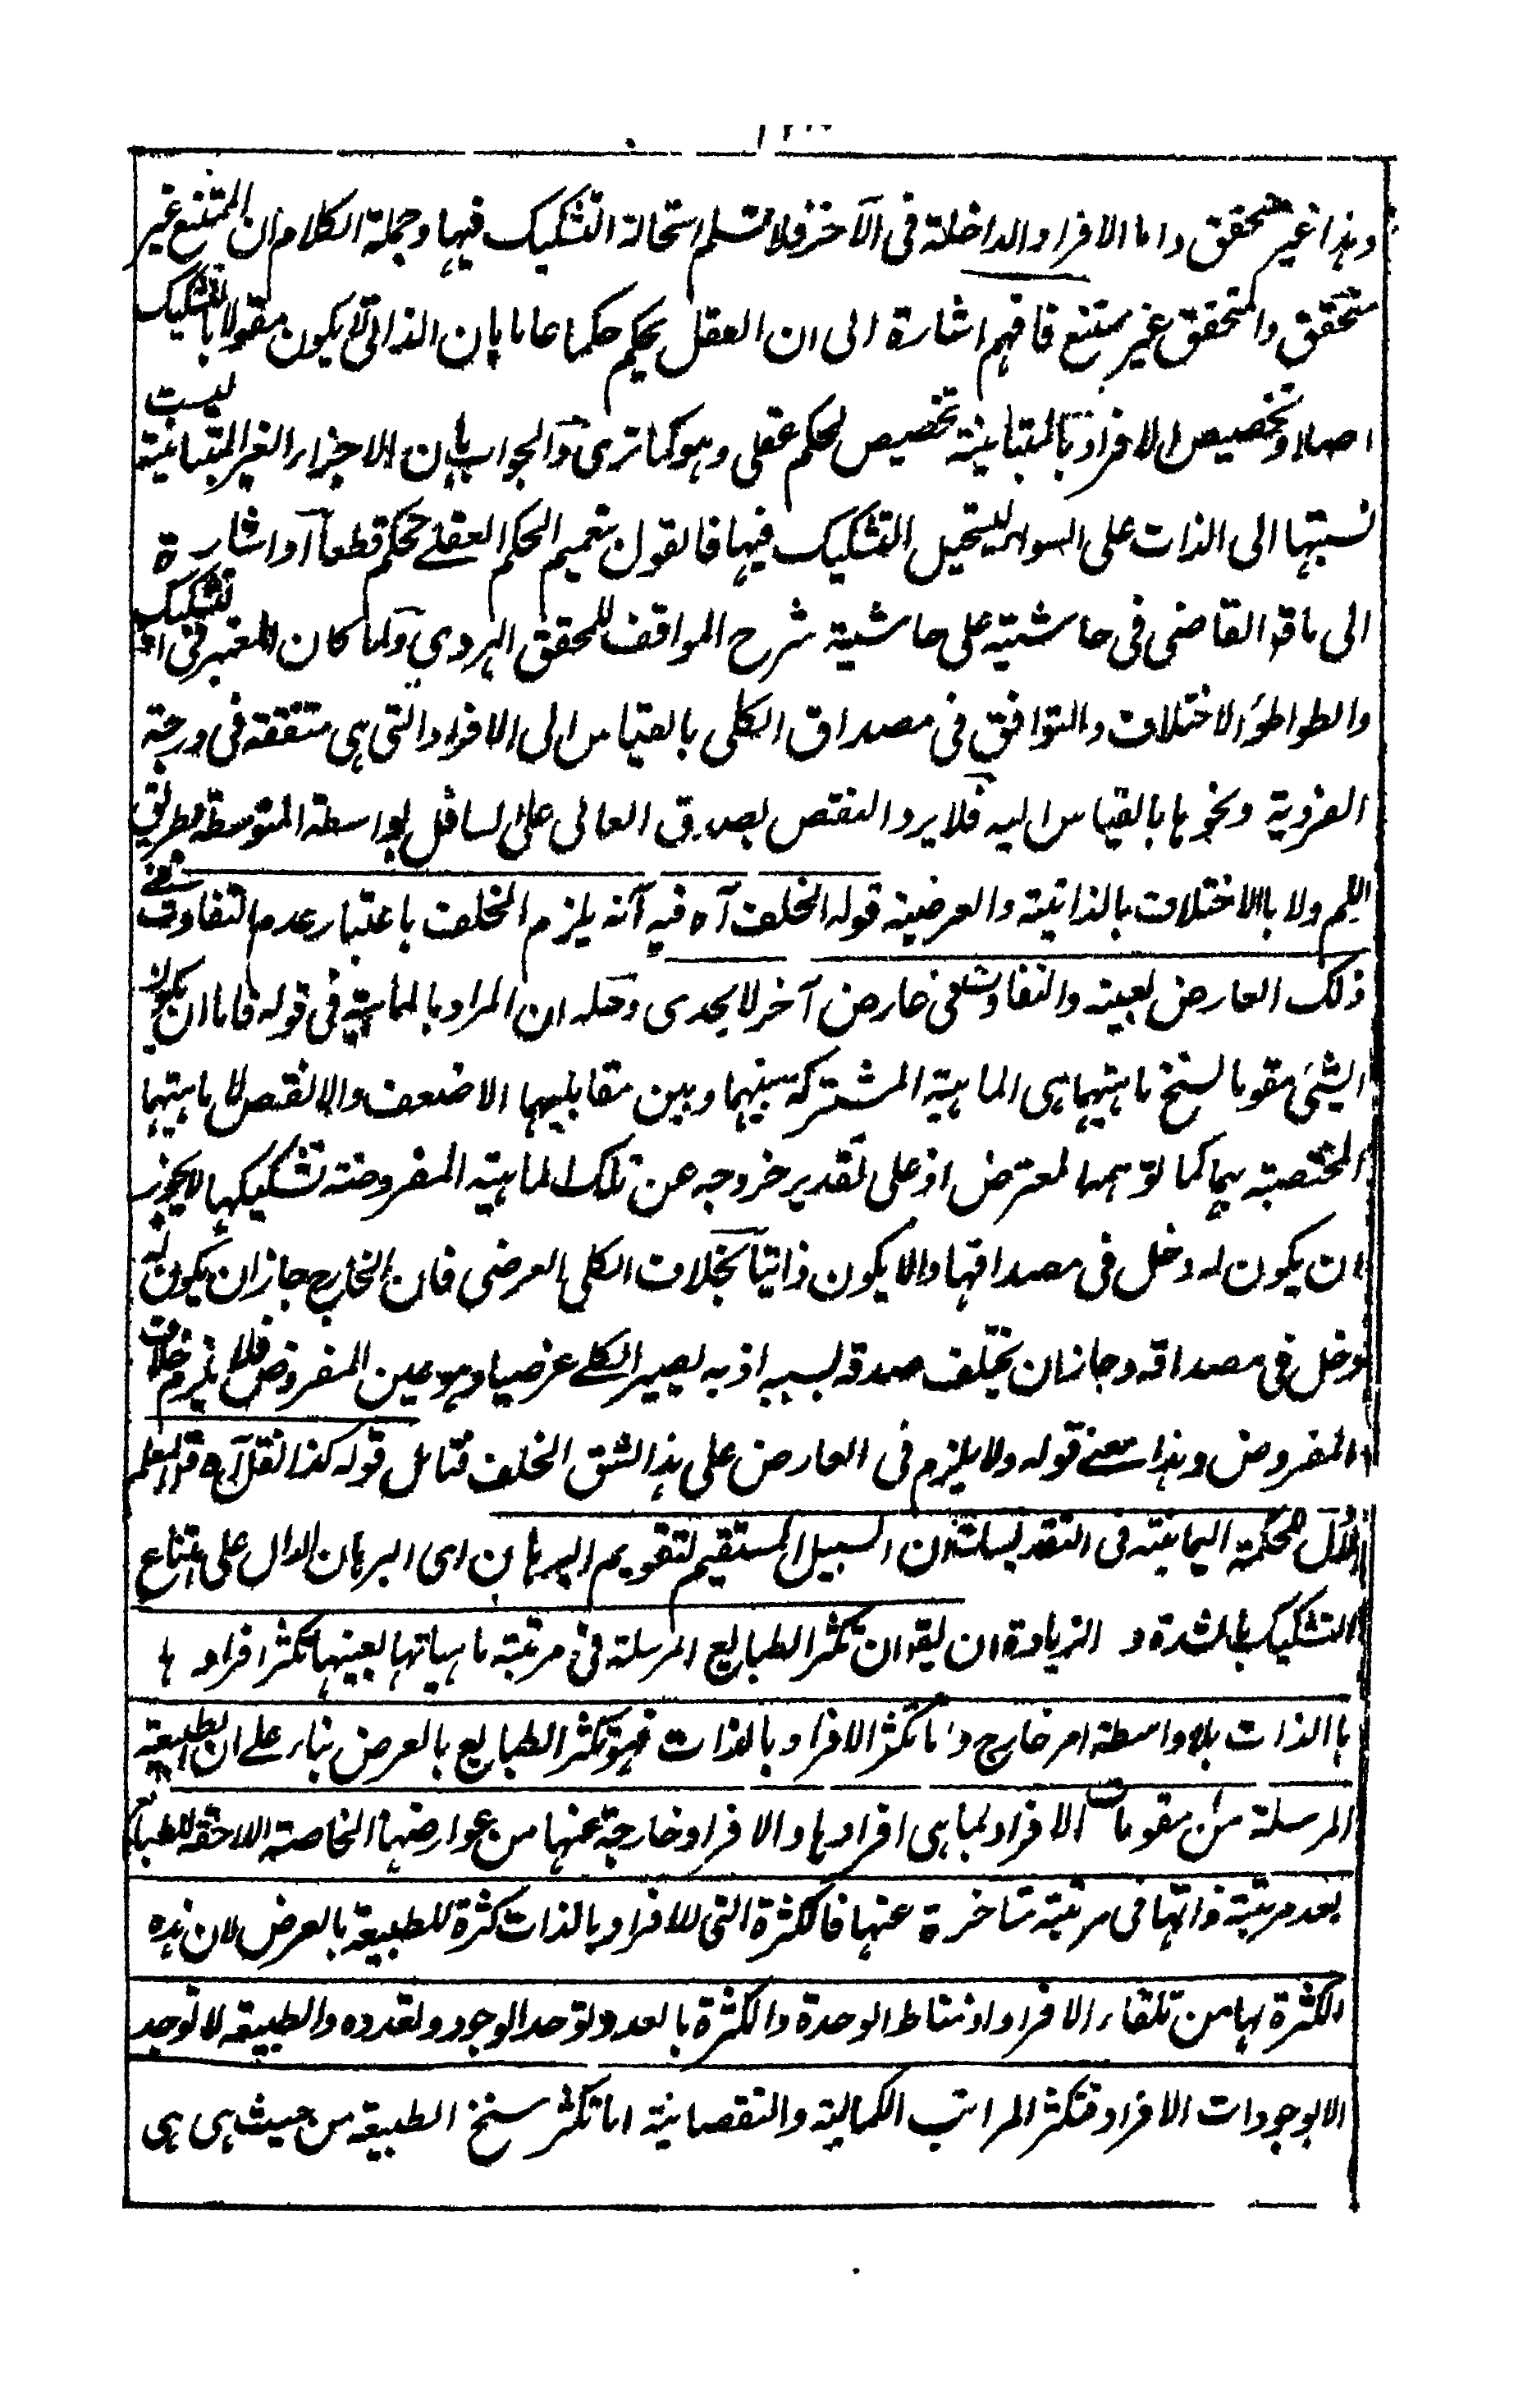 وہذا غیر متحقق واما الافراد الداخلة فی الآخر فلا نسلم استحالة التشکیک فیہا وجملة الکلام ان الممتنع غیر
متحقق والمتحقق غیر ممتنع فافہم اشارة الی ان العقل یحکم حکما عاما بان الذاتی لا یکون مقولا بالتشکیک
اصلا وتخصیص الافراد بالمتباینة تخصیص لحکم عقلی وہو کما تری والجواب بان الاجزاء الغیر المتباینة لیست
نسبتہا الی الذات علی السواء لیستحیل التشکیک فیہا فالقول بتعمیم الحکم العقلے تحکم قطعا آو اشارة
الی ما قد القاضی فی حاشیته علی حاشیة شرح المواقف للمحقق الہروی ولما کان المعتبر فی التشکیک
والطواطؤ الاختلاف والتوافق فی مصداق الکلی بالقیاس الی الافراد التی ہی متفقة فی درجة
الفردیة ونحوہا بالقیاس الیه فلا یرد النقض بصدق العالی علی السافل بواسطة المتوسطة بطریق
اللم ولا بالاختلاف بالذاتیة والعرضیة قوله الخلف آه فیه آنه یلزم الخلف باعتبار عدم التفاوت فی
ذلک العارض بعینه والتفاوت فی عارض آخر لا یجدی وحله ان المراد بالماہیة فی قوله فاما ان یکون
الشئ مقوما لسنخ ماہیتہما ہی الماہیة المشترکة بینہما وبین مقابلیہما الاضعف والانقص لا ماہیتہما
المختصة بہما کما توہمه المعترض اذ علی تقدیر خروجه عن تلک الماہیة المفروضة تشکیکہا لا یجوز
ان یکون له دخل فی مصداقہا والا یکون ذاتیا بخلاف الکلی العرضی فان الخارج جاز ان یکون له
دخل فی مصداقه وجاز ان یختلف صدقه لسببه اذ به یصیر الکلے عرضیا وہو عین المفروض فلا یلزم خلاف
المفروض وہذا معنے قوله ولا یلزم فی العارض علی ہذا الشق الخلف فتامل قوله کذا نقل آه قال المعلم
الاول للحکمة الیمانیة فی التقدیسات ان السبیل المستقیم لتقویم البرہان ای البرہان الدال علی امتناع
التشکیک بالشدة و الزیادة ان یقو ان تکثر الطبایع المرسلة فی مرتبة ماہیاتہا بعینہا تکثر افراد ہا
باالذات بلا واسطة امر خارج واما تکثر الافراد بالذات فہو تکثر الطبایع بالعرض بناء علے ان الطبیعة
المرسلة من مقومات الافراد لما ہی افرادہا والافراد خارجة عنہا من عوارضہا الخاصة اللاحقة للطبائع
بعد مرتبة ذاتہا فی مرتبة متاخرة عنہا فالکثرة التی للافراد بالذات کثرة للطبیعة بالعرض لان ہذه
الکثرة لہا من تلقاء الافراد اذ مناط الوحدة والکثرة بالعدد توحد الوجود وتعدده والطبیعة لا توجد
الا بوجودات الافراد فتکثر المراتب الکمالیة والنقصانیة اما تکثر سنخ الطبیعة من حیث ہی ہی